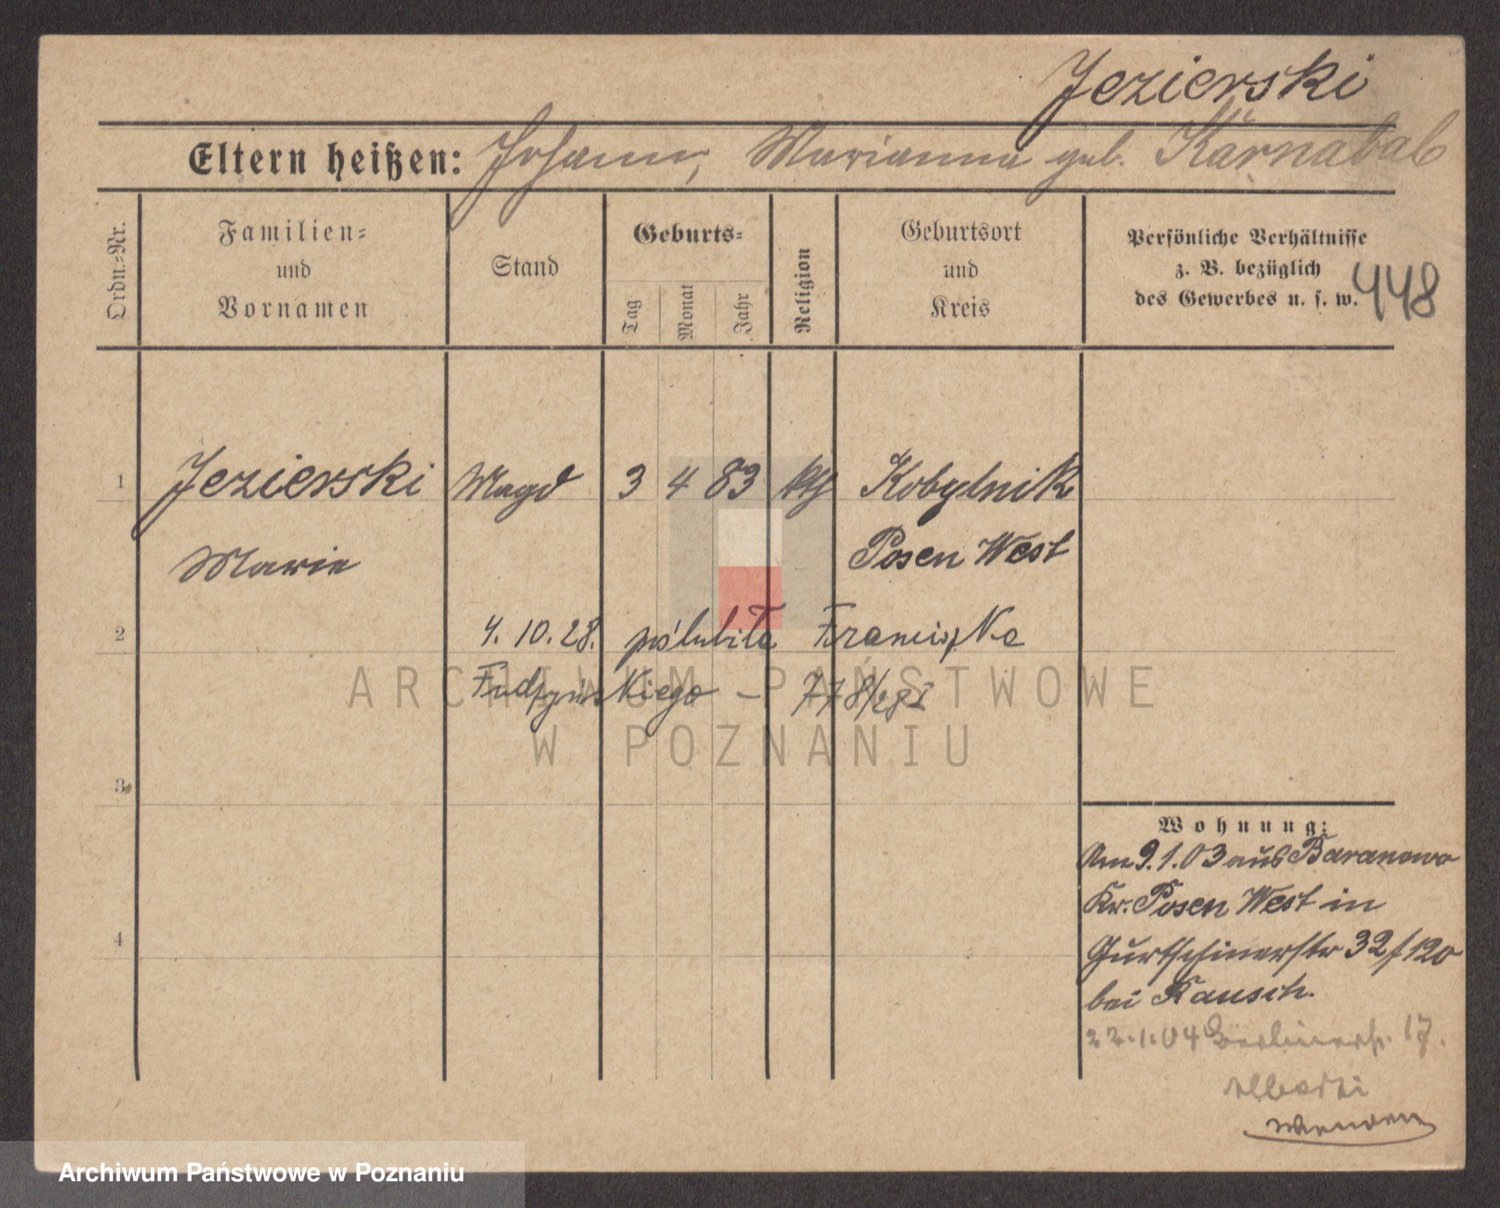 Jezierski
Eltern heißen: Johann, Marianna geb. Karnabal
Ordn.-Nr.
Familien-
und
Vornamen
Stand
Geburts-
Tag
Monat
Jahr
Religion
Geburtsort
und
Kreis
Persönliche Verhältnisse
z. B. bezüglich
des Gewerbes u. s. w.
448
1 Jezierski Magd 3 4 83 kth Kobylnik
Marie Posen West
2 4. 10. 28. poślubiła Franciszka
778/
ARCHIWUM PAŃSTWOWE
W POZNANIU
3
Wohnung:
Am 9.1.03 aus Baranowo
Kr. Posen West in
Gurtschinerstr 32/120
bei Rausch.
4
22.1.04 Berlinerstr. 17.
Archiwum Państwowe w Poznaniu